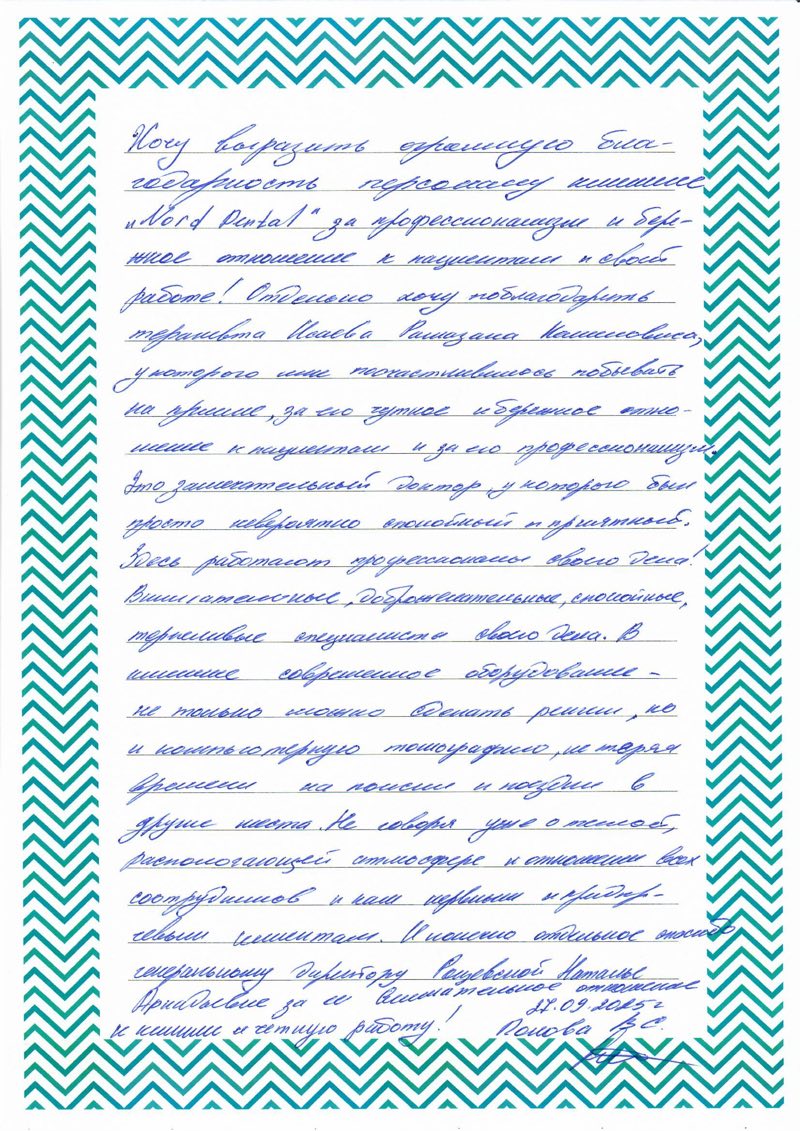 Хочу выразить огромную бла-
годарность персоналу клинике
„Nord Dental" за профессионализм и бере-
жное отношение к пациентам и своей
работе! Отдельно хочу поблагодарить
терапевта Исаева Рамазана
у которого мне посчастливилось побывать
на приеме, за его чуткое и бережное отно-
шение к пациентам и за его профессионализм.
Это замечательный доктор, у которого был
просто невероятно спокойный и приятный.
Здесь работают профессионалы своего дела!
Внимательные, доброжелательные, спокойные,
терпеливые специалисты своего дела. В
клинике современное оборудование -
не только можно сделать рентген, но
и компьютерную томографию, не теряя
времени на поиски и поездки в
другие места. Не говоря уже о теплой,
распологающей атмосфере и отношении всех
сотрудников к нам нервным и придир-
чевым клиентам. И конечно отдельное спасибо
генеральному директору Наталье
Аркадьевне за ее внимательное отношение
27.09.2025г
к клинике и четкую работу! Попова В.С.